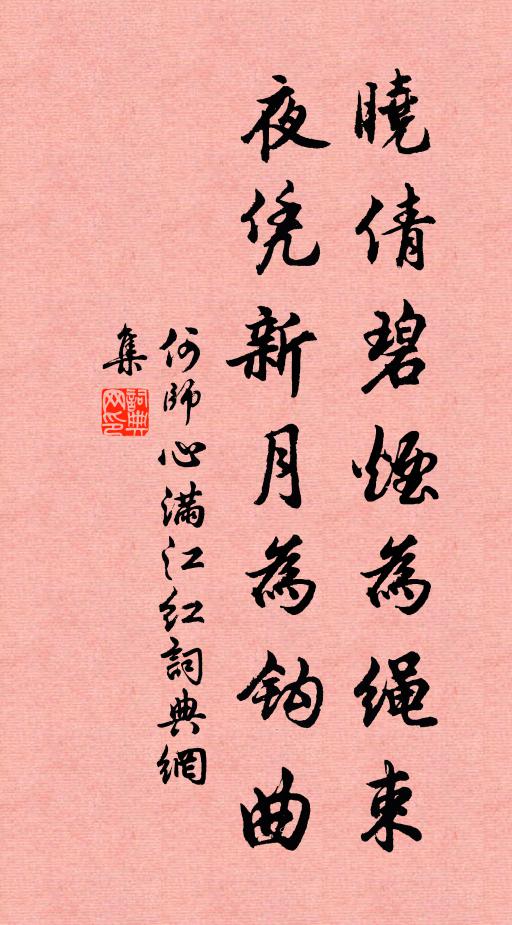 曉倩碧煙為繩束
夜凭新月為鈎曲
何師心滿江红詞典網
集
詞典網印